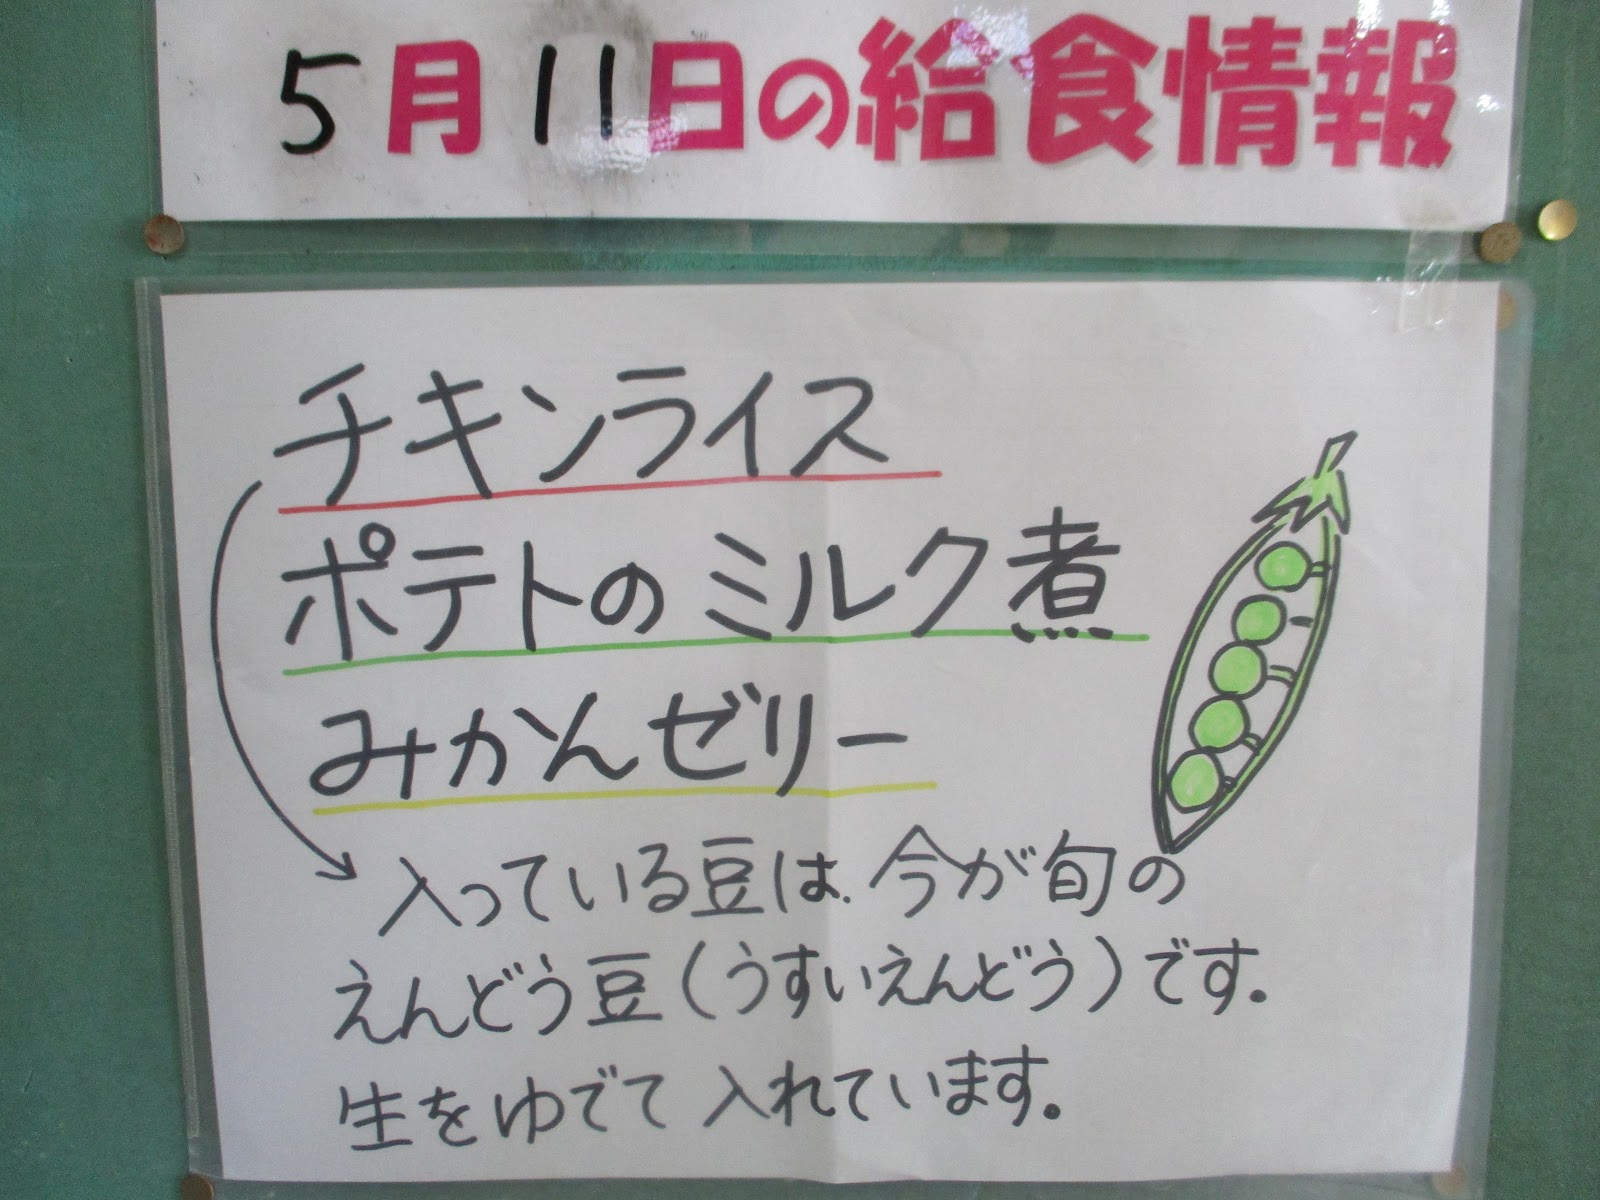 5月11日の給食情報
チキンライス
ポテトのミルク煮
みかんゼリー
入っている豆は、今が旬の
えんどう豆(うすいえんどう)です。
生をゆでて入れています。